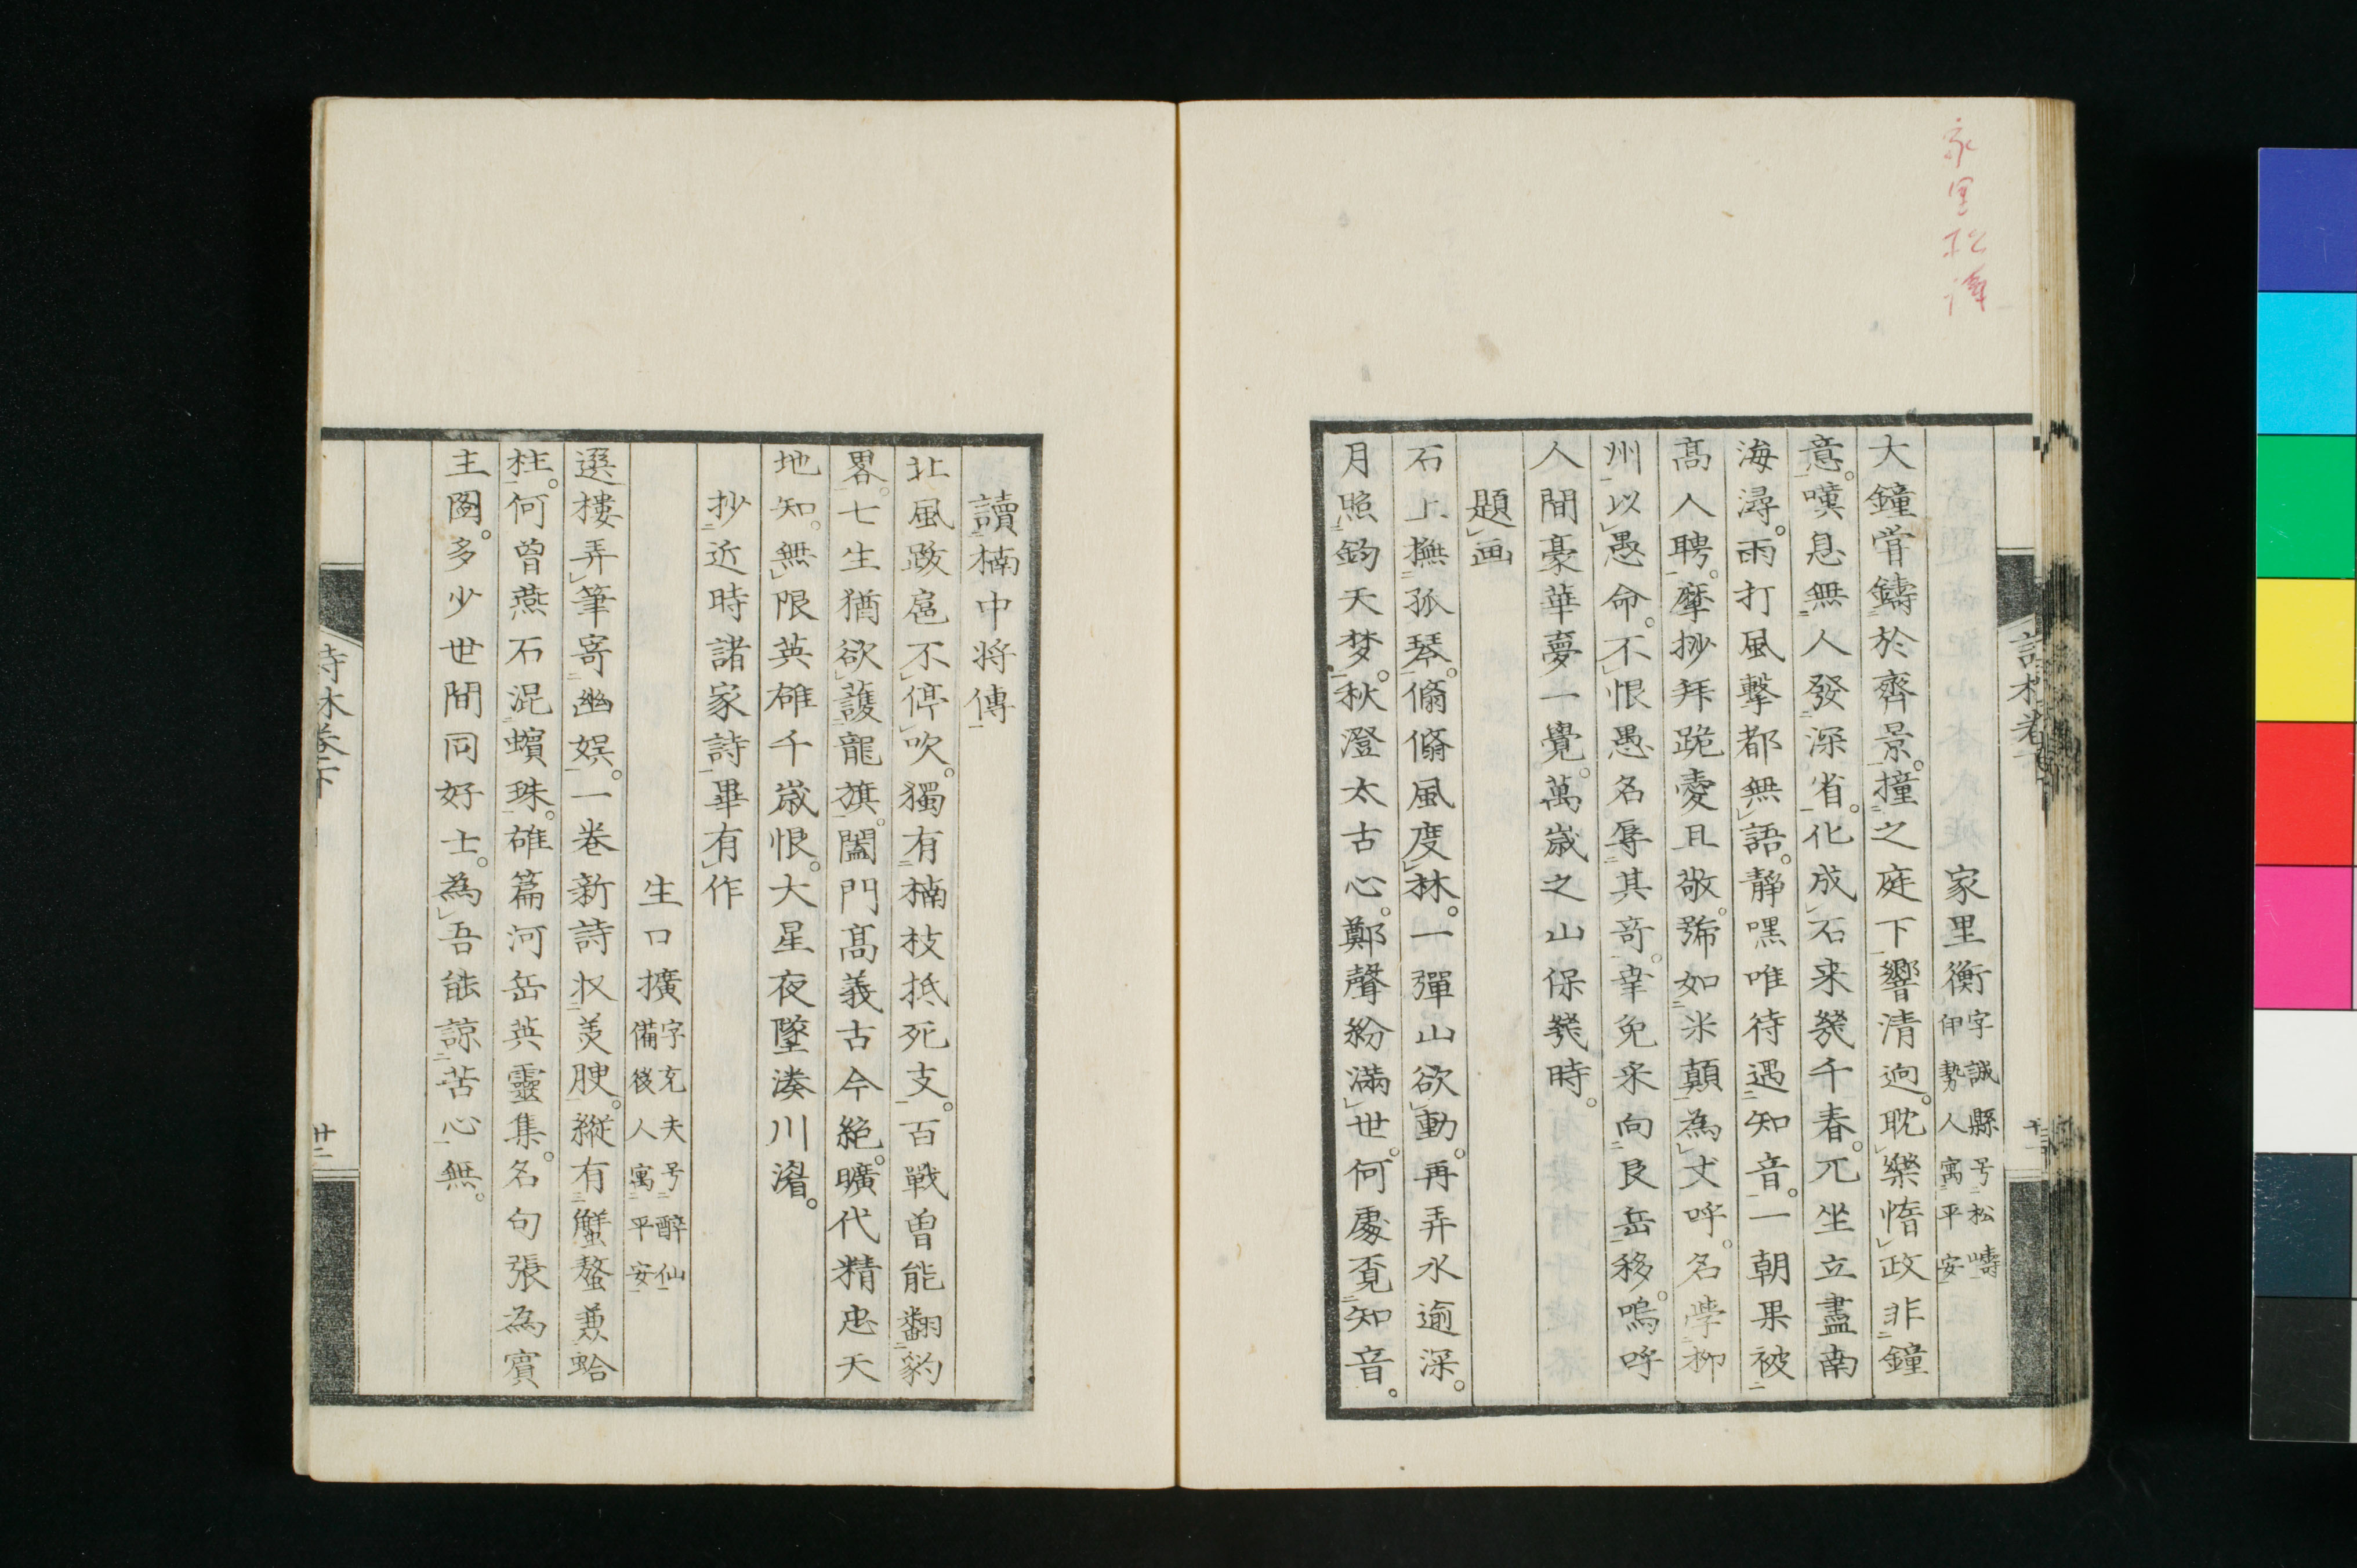 家里松濤
家里衡 字誠縣号松嚋 伊勢人寓平安
大鐘甞鑄於齊景。撞之庭下響清逈。耽樂惰政非鐘
意。嘆息無人發深省。化成石来幾千春。兀坐立盡南
海潯。雨打風擊都無語。静嘿唯待遇知音。一朝果被
髙人聘。摩挱拜跪㚆且敬。號如米顛為丈呼。名學柳
州以愚命。不恨愚名辱其竒。幸免来向艮岳移。嗚呼
人間豪華夢一覺。萬歳之山保幾時。
題画
石上撫孤琴。翛翛風度林。一彈山欲動。再弄水逾深。
月照鈞天梦。秋澄太古心。鄭聲紛滿世。何處覔知音。
讀楠中将傳
北風跋扈不停吹。獨有楠枝抵死支。百戰曾能翻豹
畧。七生猶欲護龍旗。闔門髙義古今絶。曠代精忠天
地知。無限英雄千歳恨。大星夜墜湊川湄。
抄近時諸家詩畢有作
生口擴 字充夫号醉仙 備後人寓平安
選樓弄筆寄幽娯。一巻新詩收羙腴。縱有蟹螯兼蛤
柱。何曽燕石混蠙珠。雄篇河岳英靈集。名句張為賓
主圖。多少世間同好士。為吾能諒苦心無。
詩林巻下
廿二